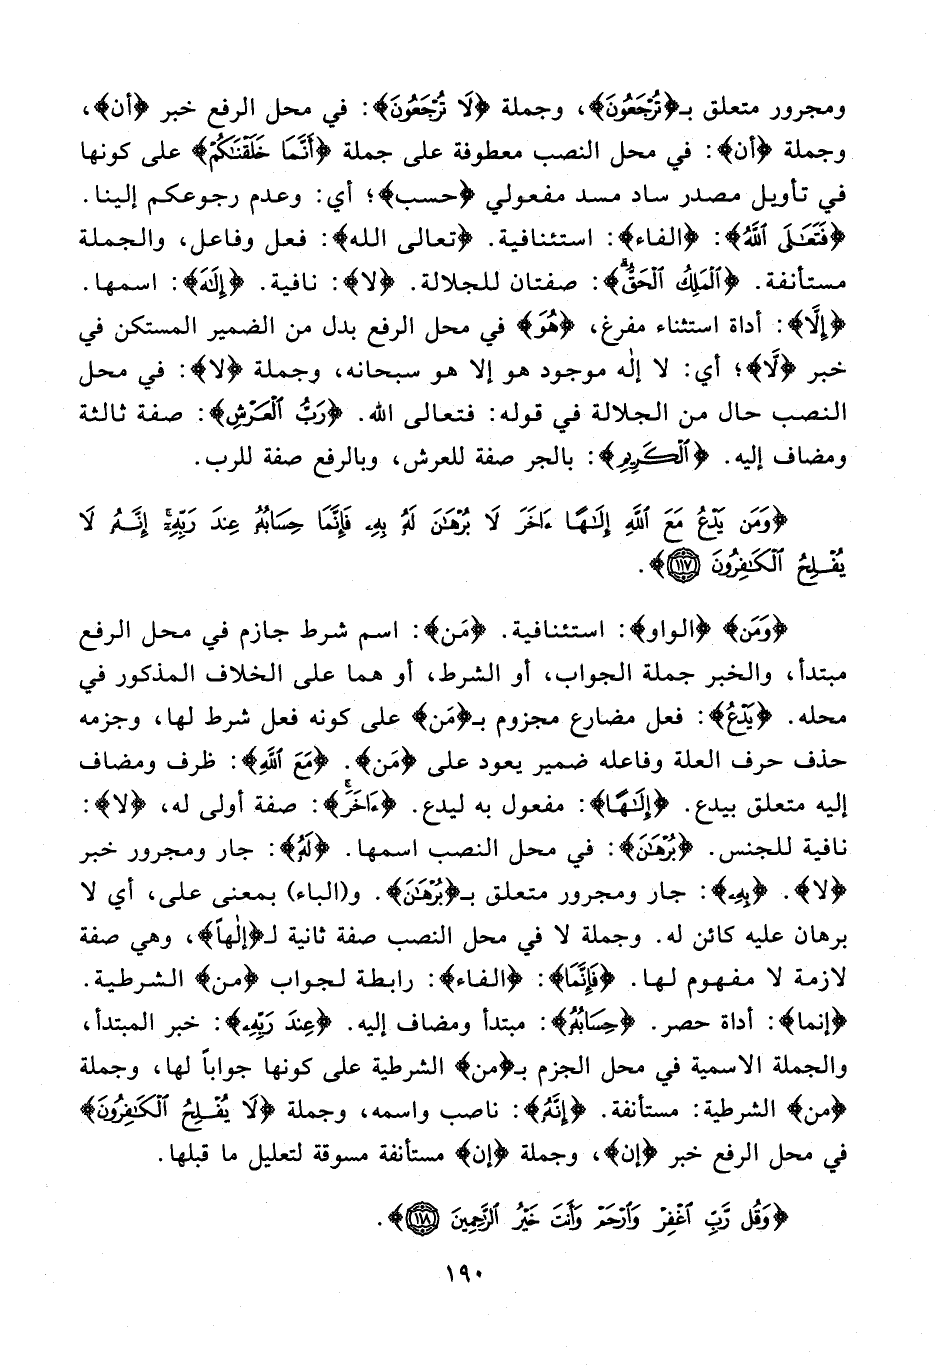 ومجرور متعلق بـ﴿تُرْجَعُونَ﴾، وجملة ﴿لَا تُرْجَعُونَ﴾: في محل الرفع خبر ﴿أن﴾،
وجملة ﴿أن﴾: في محل النصب معطوفة على جملة ﴿أَنَّمَا خَلَقْنَاكُمْ﴾ على كونها
في تأويل مصدر ساد مسد مفعولي ﴿حسب﴾؛ أي: وعدم رجوعكم إلينا.
﴿فَتَعَٰلَى ٱللَّهُ﴾: ﴿الفاء﴾: استئنافية. ﴿تعالى الله﴾: فعل وفاعل، والجملة
مستأنفة. ﴿ٱلْمَلِكُ ٱلْحَقُّ﴾: صفتان للجلالة. ﴿لا﴾: نافية. ﴿إِلَٰهَ﴾: اسمها.
﴿إِلَّا﴾: أداة استثناء مفرغ، ﴿هُوَ﴾ في محل الرفع بدل من الضمير المستكن في
خبر ﴿لَّا﴾؛ أي: لا إلٰه موجود هو إلا هو سبحانه، وجملة ﴿لا﴾: في محل
النصب حال من الجلالة في قوله: فتعالى الله. ﴿رَبُّ ٱلْعَرْشِ﴾: صفة ثالثة
ومضاف إليه. ﴿ٱلْكَرِيمِ﴾: بالجر صفة للعرش، وبالرفع صفة للرب.
﴿وَمَن يَدْعُ مَعَ ٱللَّهِ إِلَٰهًا ءَاخَرَ لَا بُرْهَٰنَ لَهُۥ بِهِۦ فَإِنَّمَا حِسَابُهُۥ عِندَ رَبِّهِۦٓ إِنَّهُۥ لَا
يُفْلِحُ ٱلْكَٰفِرُونَ ١١٧﴾.
﴿وَمَن﴾ ﴿الواو﴾: استئنافية. ﴿مَن﴾: اسم شرط جازم في محل الرفع
مبتدأ، والخبر جملة الجواب، أو الشرط، أو هما على الخلاف المذكور في
محله. ﴿يَدْعُ﴾: فعل مضارع مجزوم بـ﴿مَن﴾ على كونه فعل شرط لها، وجزمه
حذف حرف العلة وفاعله ضمير يعود على ﴿مَن﴾. ﴿مَعَ ٱللَّهِ﴾: ظرف ومضاف
إليه متعلق بيدع. ﴿إِلَٰهًا﴾: مفعول به ليدع. ﴿ءَاخَرَ﴾: صفة أولى له، ﴿لا﴾:
نافية للجنس. ﴿بُرْهَٰنَ﴾: في محل النصب اسمها. ﴿لَهُۥ﴾: جار ومجرور خبر
﴿لا﴾. ﴿بِهِۦ﴾: جار ومجرور متعلق بـ﴿بُرْهَٰنَ﴾. و(الباء) بمعنى على، أي لا
برهان عليه كائن له. وجملة لا في محل النصب صفة ثانية لـ﴿إلٰهاً﴾، وهي صفة
لازمة لا مفهوم لها. ﴿فَإِنَّمَا﴾: ﴿الفاء﴾: رابطة لجواب ﴿من﴾ الشرطية.
﴿إنما﴾: أداة حصر. ﴿حِسَابُهُۥ﴾: مبتدأ ومضاف إليه. ﴿عِندَ رَبِّهِۦ﴾: خبر المبتدأ،
والجملة الاسمية في محل الجزم بـ﴿من﴾ الشرطية على كونها جواباً لها، وجملة
﴿من﴾ الشرطية: مستأنفة. ﴿إِنَّهُۥ﴾: ناصب واسمه، وجملة ﴿لَا يُفْلِحُ ٱلْكَٰفِرُونَ﴾
في محل الرفع خبر ﴿إن﴾، وجملة ﴿إن﴾ مستأنفة مسوقة لتعليل ما قبلها.
﴿وَقُل رَّبِّ ٱغْفِرْ وَٱرْحَمْ وَأَنتَ خَيْرُ ٱلرَّٰحِمِينَ ١١٨﴾.
١٩٠